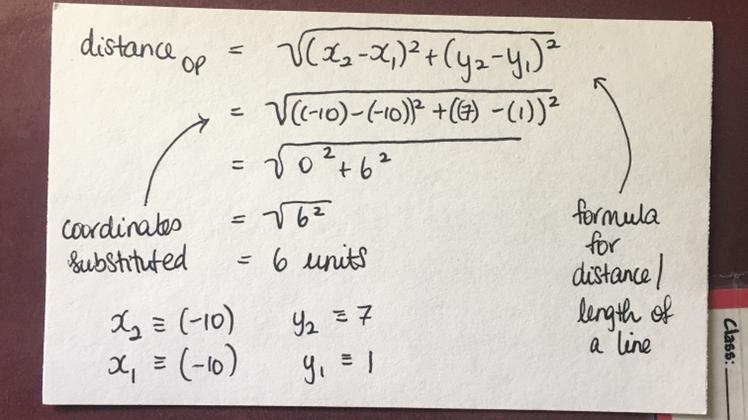 distance op = √(x₂-x₁)²+(y₂-y₁)²
= √((-10)-(-10))² +((7) -(1))²
= √0²+6²
= √6²
= 6 units
coordinates
substituted
formula
for
distance/
length of
a line
x₂ ≡ (-10) y₂ ≡ 7
x₁ ≡ (-10) y₁ ≡ 1
Class: